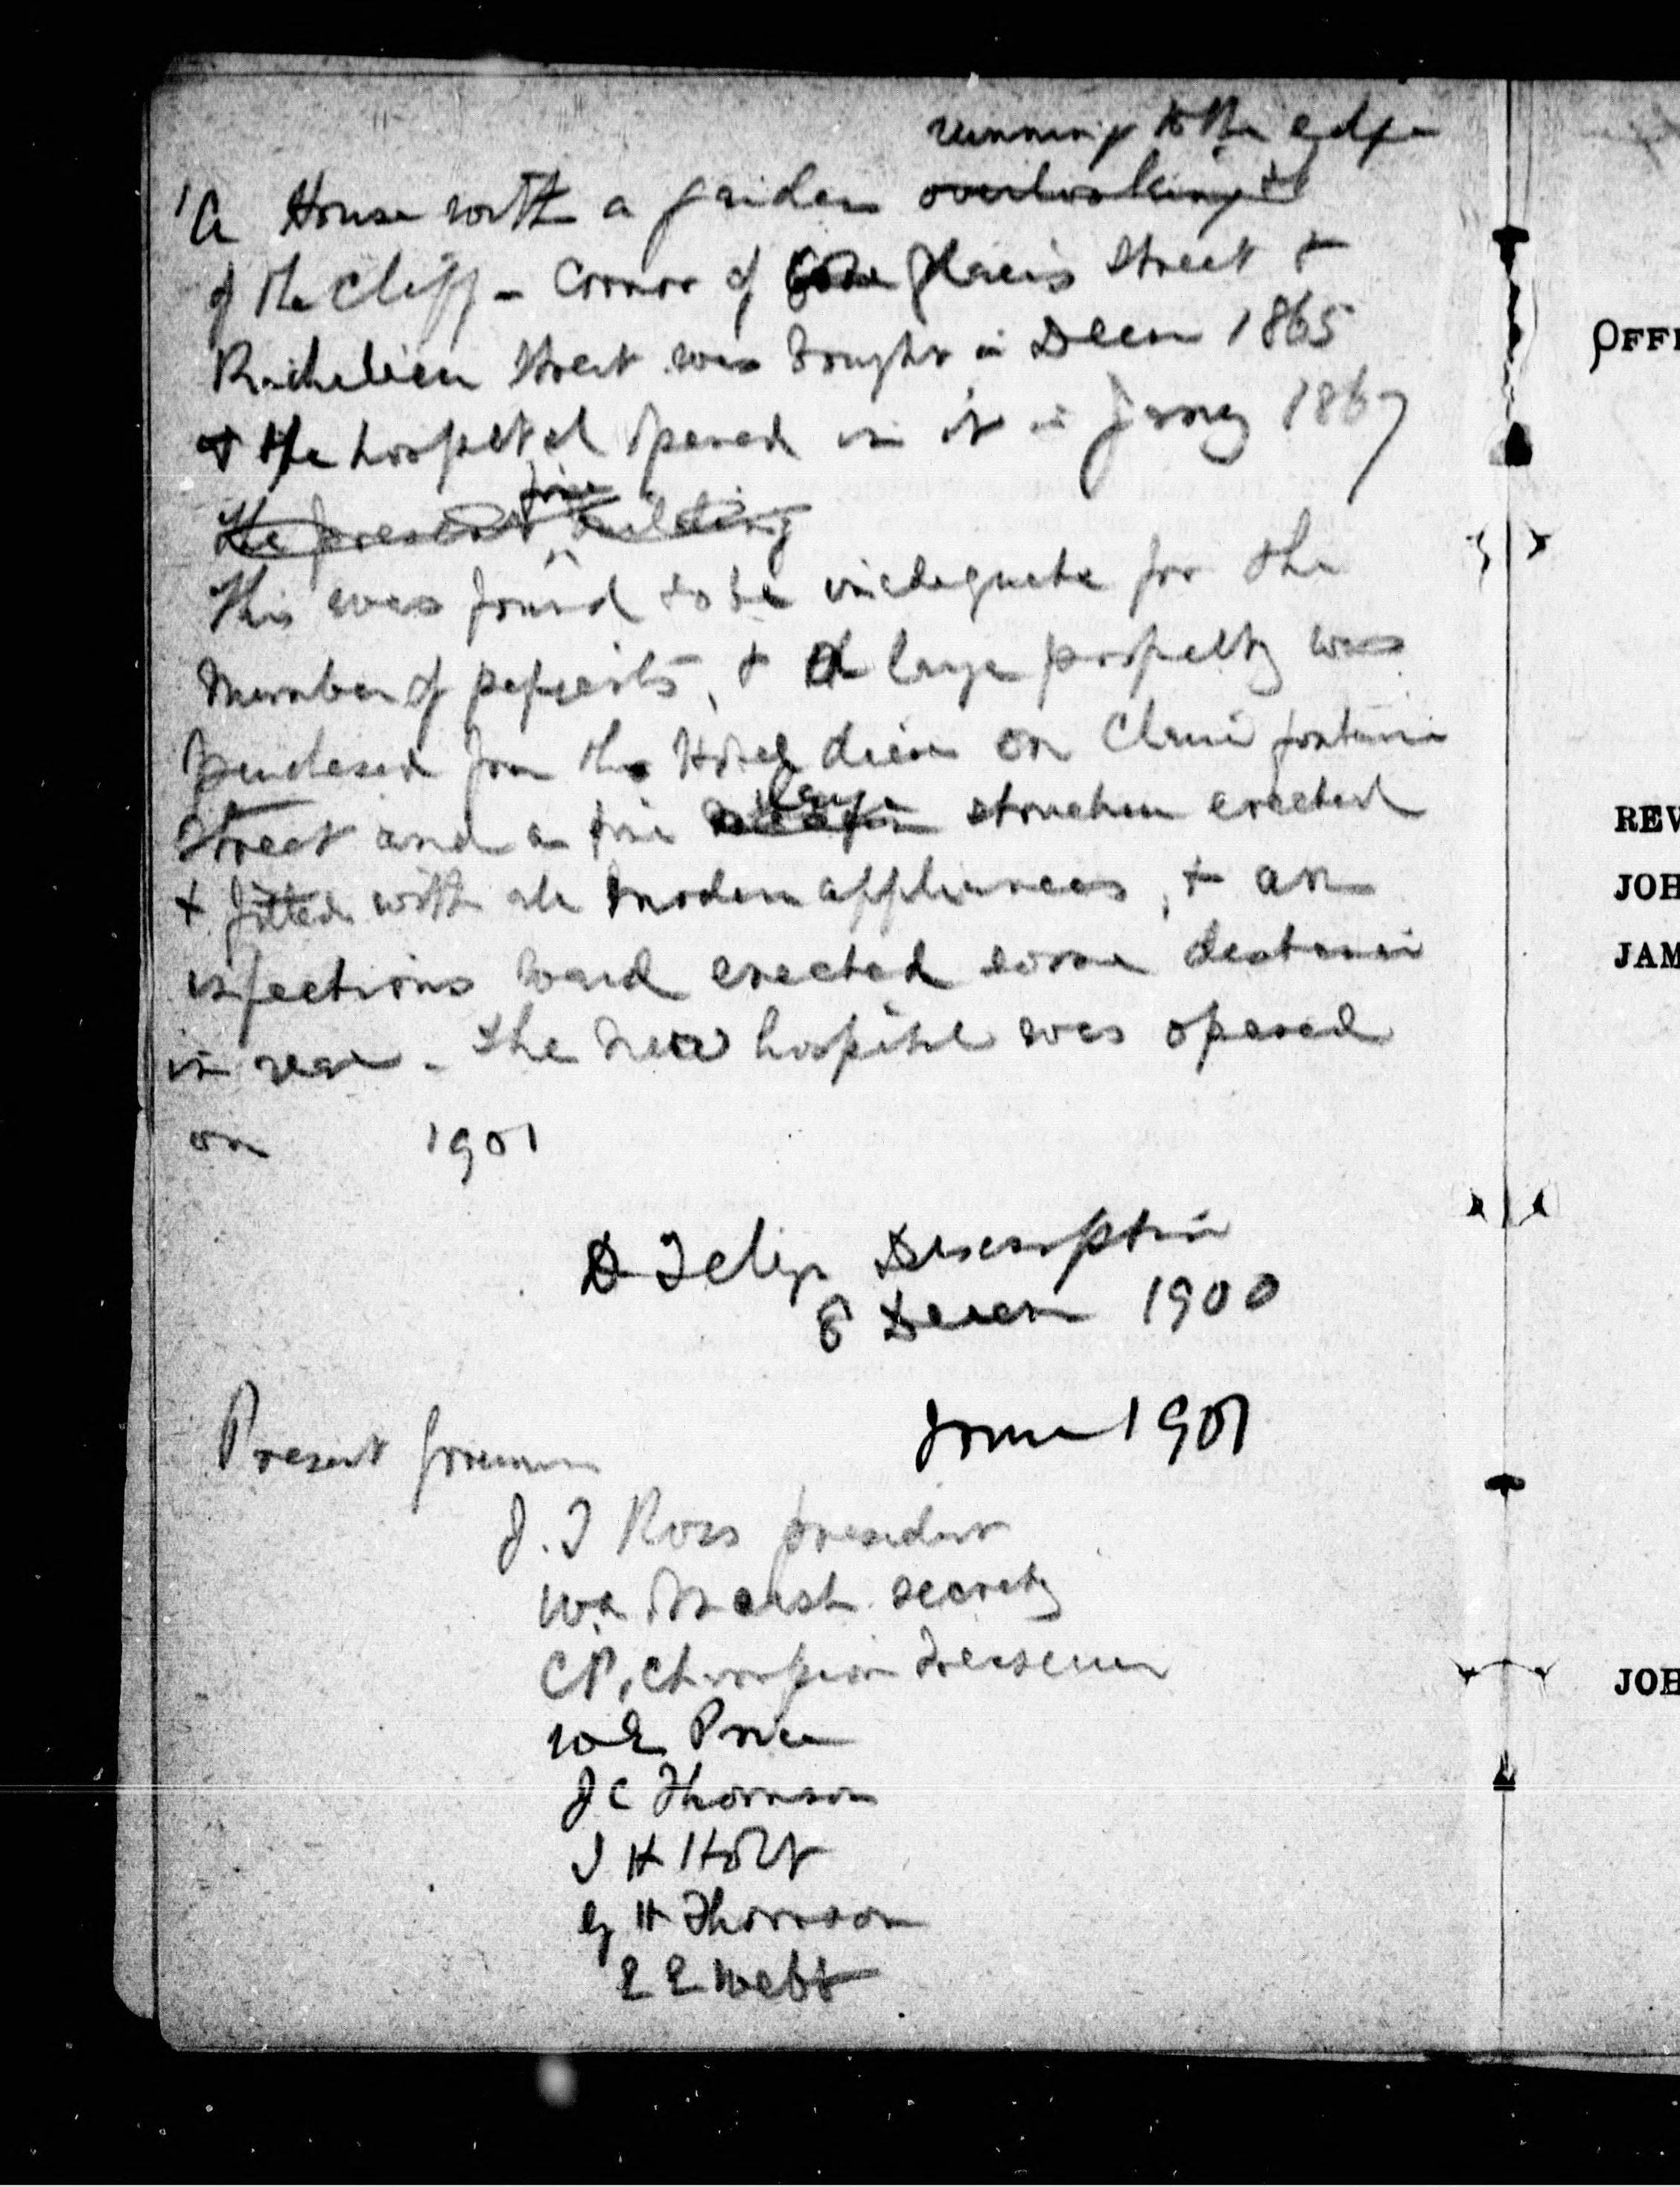 running to the edge
A House with a garden overlooking
of the Cliff - Corner of Glacis Street +
Richelieu Street was bought in Decem 1865
+ the hospital opened in it in Jany 1867
fine
The present building
This was found to be inadequate for the
Number of patients, + a large property was
purchased from the Hotel dieu on Claire fontaine
Street and a fine large structure erected
+ fitted with all modern appliances, + an
infectious ward erected some distance
in rear - The new hospital was opened
on 1901
D Telegr Description
8 Decem 1900
June 1901
Present
J.T Ross president
Wm Marsh secrety
C.P. Champion Treasurer
W E Price
J C Thomson
J H Holt
G H Thomson
E E Webb
OFFI
REV
JOH
JAM
JOH